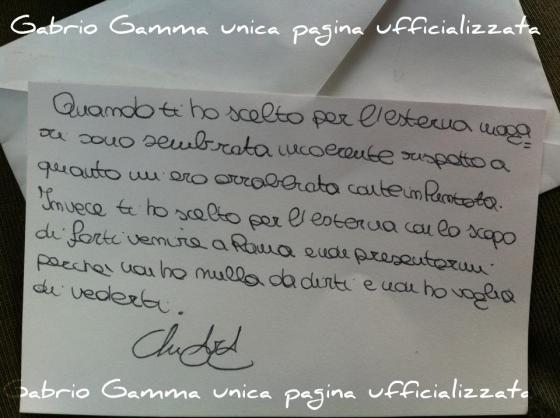 Gabrio Gamma unica pagina ufficializzata
Quando ti ho scelto per l'esterna maga=
ri sono sembrata incoerente rispetto a
quanto mi ero arrabbiata con te in puntata.
Invece ti ho scelto per l'esterna con lo scopo
di farti venire a Roma e non presentarmi
perché non ho nulla da dirti e non ho voglia
di vederti.
Gabrio Gamma unica pagina ufficializzata